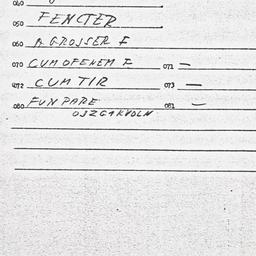 040
050 FENCTER
060 A GROSSER F
070 CUM OFENEM F 071 —
072 CUM TIR 073 —
080 FUN PARE 081 —
OJZGAKVOLN